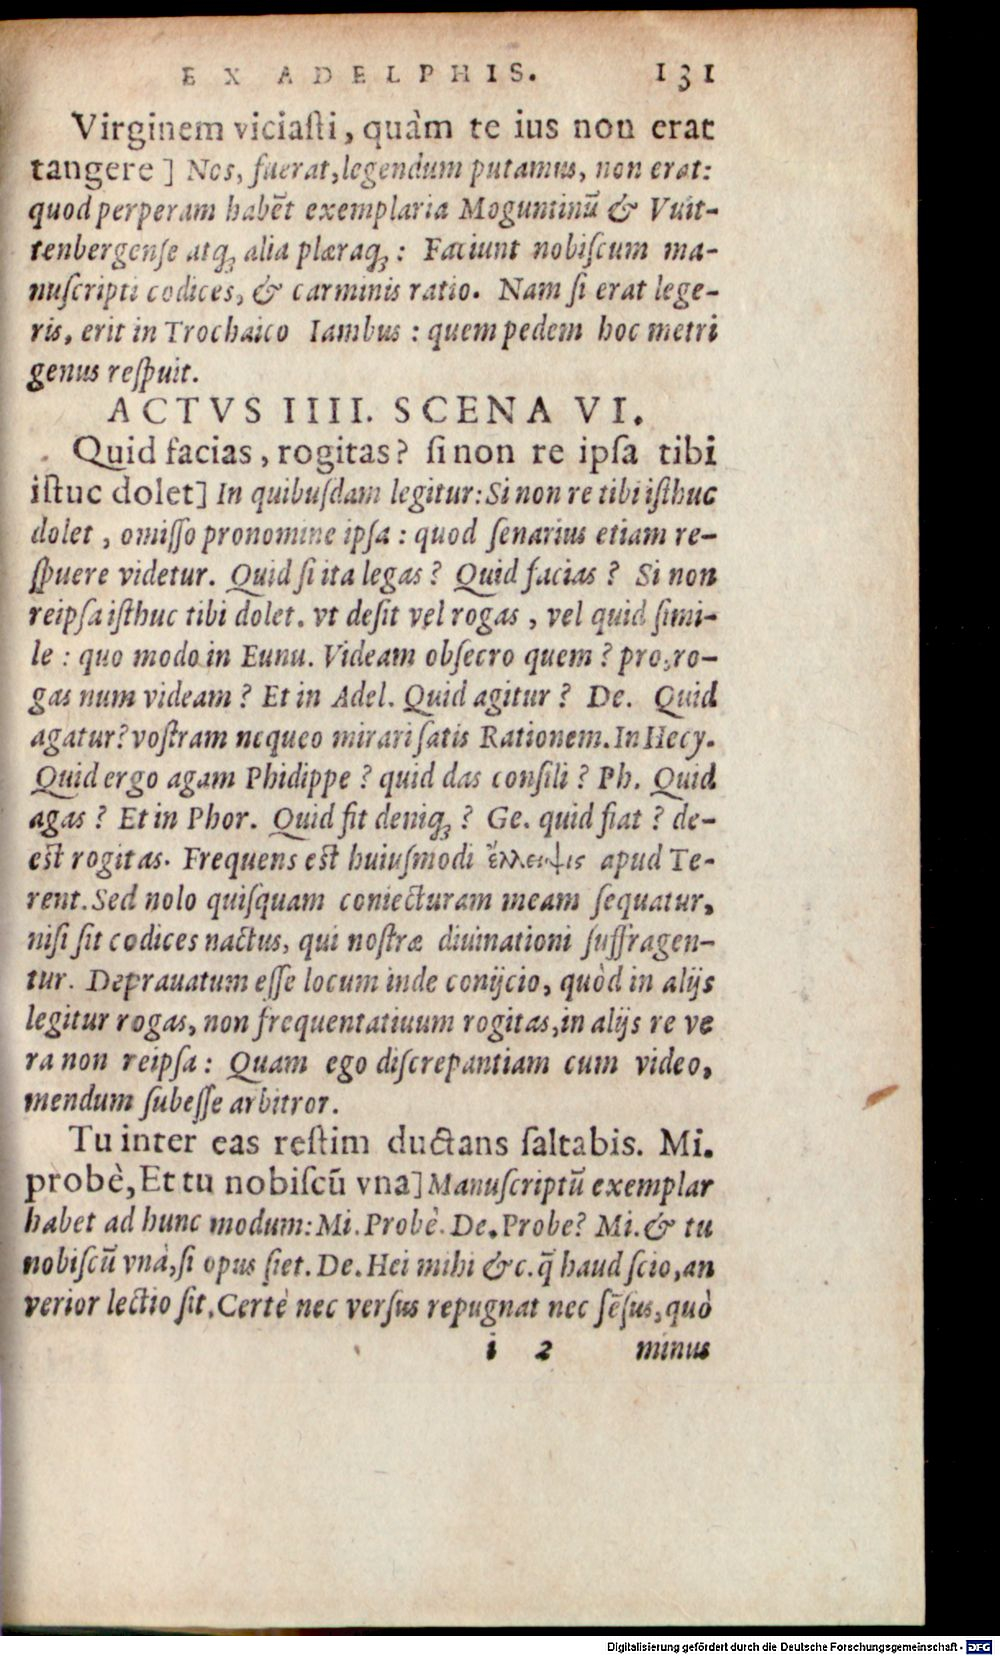 EX ADELPHIS. 131
Virginem viciaſti, quàm te ius non erat
tangere] Nos, fuerat, legendum putamus, non erat:
quod perperam habēt exemplaria Moguntinū & Vuit-
tenbergenſe atqꝫ alia plæraqꝫ: Faciunt nobiſcum ma-
nuſcripti codices, & carminis ratio. Nam ſi erat lege-
ris, erit in Trochaico Iambus: quem pedem hoc metri
genus reſpuit.
ACTVS IIII. SCENA VI.
Quid facias, rogitas? ſi non re ipſa tibi
iſtuc dolet] In quibuſdam legitur: Si non re tibi iſthuc
dolet, omiſſo pronomine ipſa: quod ſenarius etiam re-
ſpuere videtur. Quid ſi ita legas? Quid facias? Si non
reipſa iſthuc tibi dolet. vt deſit vel rogas, vel quid ſimi-
le: quo modo in Eunu. Videam obſecro quem? pro, ro-
gas num videam? Et in Adel. Quid agitur? De. Quid
agatur? voſtram nequeo mirari ſatis Rationem. In Hecy.
Quid ergo agam Phidippe? quid das conſili? Ph. Quid
agas? Et in Phor. Quid fit deniqꝫ? Ge. quid fiat? de-
eſt rogitas. Frequens eſt huiuſmodi ἔλλειψις apud Te-
rent. Sed nolo quiſquam coniecturam meam ſequatur,
niſi ſit codices nactus, qui noſtræ diuinationi ſuffragen-
tur. Deprauatum eſſe locum inde conijcio, quòd in alijs
legitur rogas, non frequentatiuum rogitas, in alijs re ve
ra non reipſa: Quam ego diſcrepantiam cum video,
mendum ſubeſſe arbitror.
Tu inter eas reſtim ductans ſaltabis. Mi.
probè, Et tu nobiſcū vna] Manuſcriptū exemplar
habet ad hunc modum: Mi. Probè. De. Probe? Mi. & tu
nobiſcū vnà, ſi opus ſiet. De. Hei mihi &c. q̄ haud ſcio, an
verior lectio ſit. Certè nec verſus repugnat nec ſēſus, quò
i 2 minus
Digitalisierung gefördert durch die Deutsche Forschungsgemeinschaft - DFG